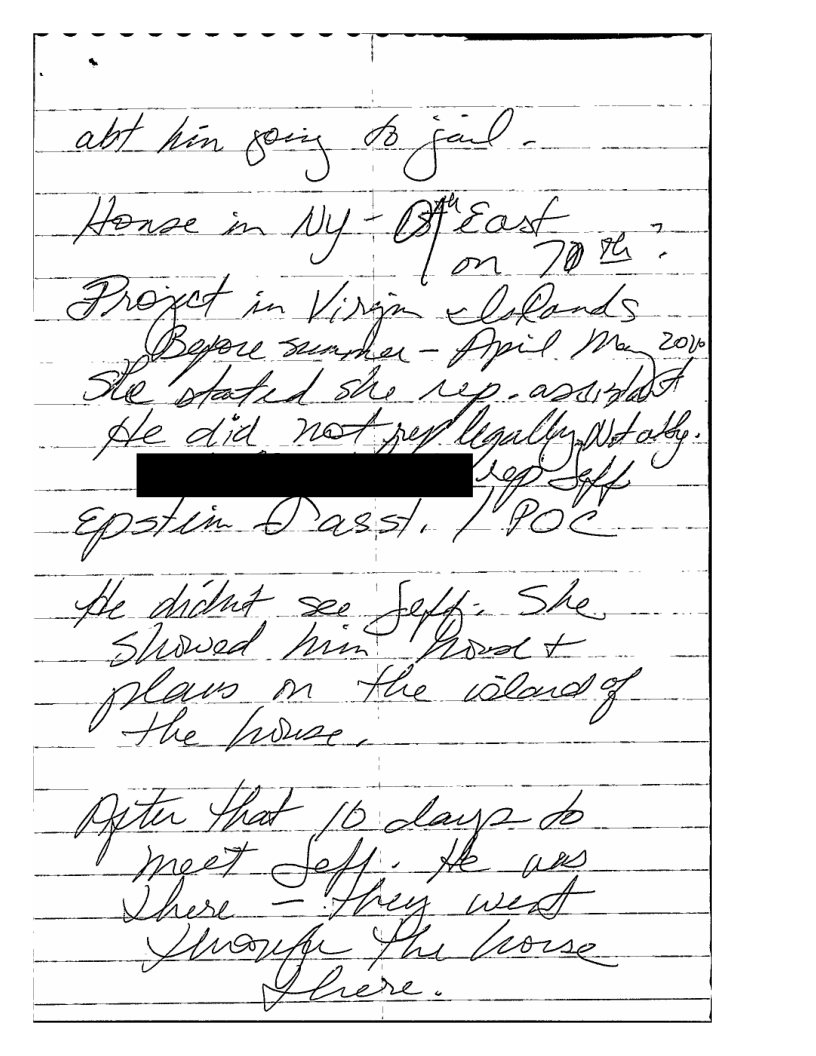 abt him going to jail -
House in NY - East
on 70th?
Project in Virgin Islands
Before summer - April May 2010
She stated she rep. assistant
He did not rep legally. Not atty.
rep Jeff
Epstein asst. / POC
He didnt see Jeff. She
showed him house +
plans on the island of
the house.
After that 10 days to
meet Jeff. He was
there - they went
through the house
there.